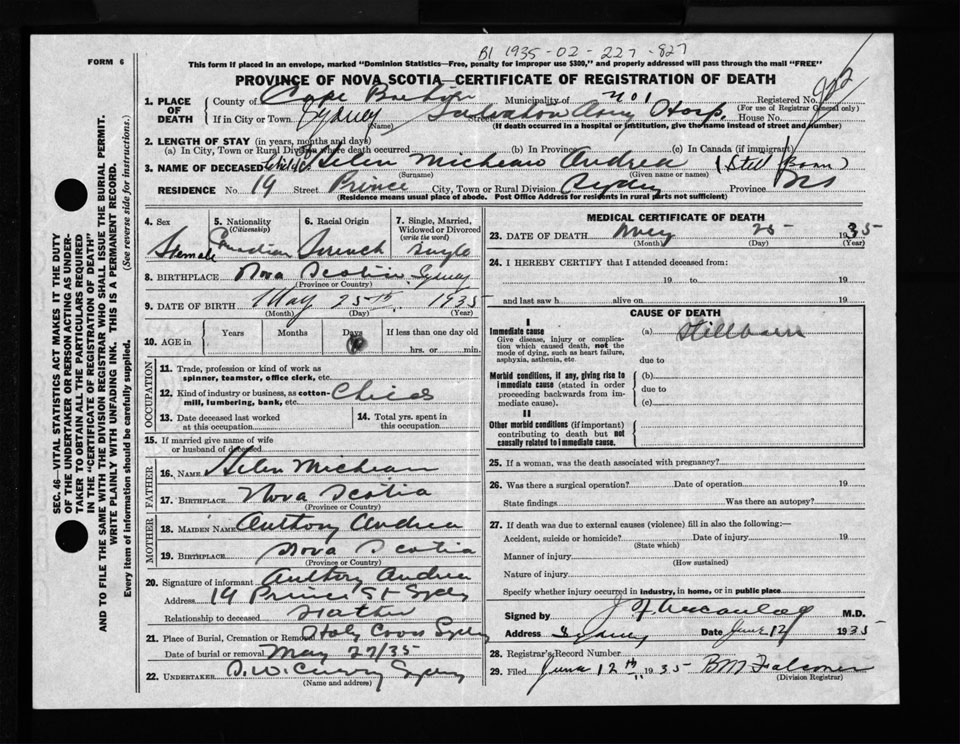 B1 1935-02-227-827
FORM 6
This form if placed in an envelope, marked "Dominion Statistics—Free, penalty for improper use $300," and properly addressed will pass through the mail "FREE"
PROVINCE OF NOVA SCOTIA—CERTIFICATE OF REGISTRATION OF DEATH
1. PLACE OF DEATH
County of Cape Breton Municipality of No 1 Registered No.
(For use of Registrar General only)
If in City or Town Sydney Street Salvation Army Hosp. House No.
(Name) (If death occurred in a hospital or institution, give the name instead of street and number)
2. LENGTH OF STAY (in years, months and days)
(a) In City, Town or Rural Division where death occurred (b) In Province (c) In Canada (if immigrant)
3. NAME OF DECEASED Child of Helen Micheau Andrea (Still Born)
(Surname) (Given name or names)
RESIDENCE No. 19 Street Prince City, Town or Rural Division Sydney Province NS
(Residence means usual place of abode. Post Office Address for residents in rural parts not sufficient)
4. Sex 5. Nationality (Citizenship) 6. Racial Origin 7. Single, Married, Widowed or Divorced (write the word)
Female Canadian French single
8. BIRTHPLACE Nova Scotia Sydney
(Province or Country)
9. DATE OF BIRTH May 25th 1935
(Month) (Day) (Year)
10. AGE in Years Months Days If less than one day old
hrs. or min.
OCCUPATION
11. Trade, profession or kind of work as spinner, teamster, office clerk, etc.
12. Kind of industry or business, as cotton-mill, lumbering, bank, etc. Child
13. Date deceased last worked at this occupation
14. Total yrs. spent in this occupation
15. If married give name of wife or husband of deceased
FATHER
16. NAME Helen Micheau
17. BIRTHPLACE Nova Scotia
(Province or Country)
MOTHER
18. MAIDEN NAME Anthony Andrea
19. BIRTHPLACE Nova Scotia
(Province or Country)
20. Signature of informant Anthony Andrea
Address 19 Prince St Sydney
Relationship to deceased Father
21. Place of Burial, Cremation or Removal Holy Cross Sydney
Date of burial or removal May 27/35
22. UNDERTAKER D.W. Curry Sydney
(Name and address)
MEDICAL CERTIFICATE OF DEATH
23. DATE OF DEATH May 25 1935
(Month) (Day) (Year)
24. I HEREBY CERTIFY that I attended deceased from:
19 to 19
and last saw h alive on 19
CAUSE OF DEATH
I
Immediate cause (a) Stillborn
Give disease, injury or complication which caused death, not the mode of dying, such as heart failure, asphyxia, asthenia, etc.
due to
Morbid conditions, if any, giving rise to immediate cause (stated in order proceeding backwards from immediate cause).
(b)
due to
(c)
II
Other morbid conditions (if important) contributing to death but not causally related to immediate cause.
25. If a woman, was the death associated with pregnancy?
26. Was there a surgical operation? Date of operation 19
State findings Was there an autopsy?
27. If death was due to external causes (violence) fill in also the following:—
Accident, suicide or homicide? Date of injury 19
(State which)
Manner of injury
(How sustained)
Nature of injury
Specify whether injury occurred in industry, in home, or in public place
Signed by M.D.
Address Sydney Date June 12 1935
28. Registrar's Record Number
29. Filed June 12th 1935 B M Falconer
(Division Registrar)
SEC. 46—VITAL STATISTICS ACT MAKES IT THE DUTY
OF THE UNDERTAKER OR PERSON ACTING AS UNDER-
TAKER TO OBTAIN ALL THE PARTICULARS REQUIRED
IN THE "CERTIFICATE OF REGISTRATION OF DEATH"
AND TO FILE THE SAME WITH THE DIVISION REGISTRAR WHO SHALL ISSUE THE BURIAL PERMIT.
WRITE PLAINLY WITH UNFADING INK. THIS IS A PERMANENT RECORD.
Every item of information should be carefully supplied. (See reverse side for instructions.)